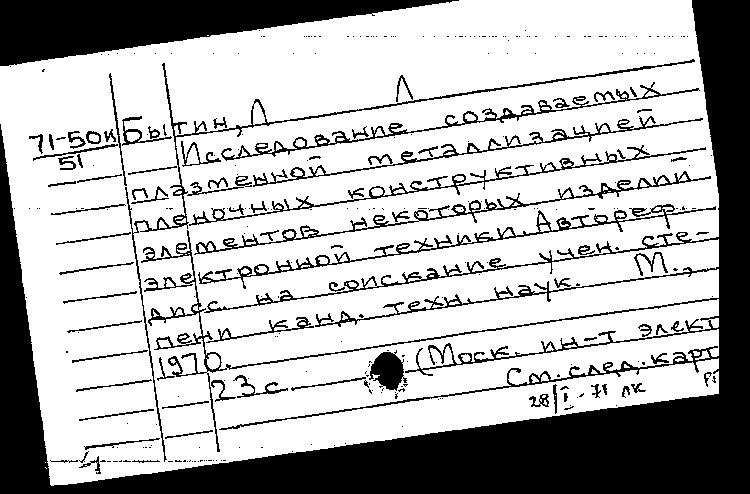 71-50к Бытин, Л Л
51
Исследование создаваемых
плазменной металлизацией
пленочных конструктивных
элементов некоторых изделий
электронной техники. Автореф.
дисс. на соискание учен. сте-
пени канд. техн. наук. М.,
1970.
23 с. (Моск. ин-т элект
См. след. карт
28/I-71 лк рг